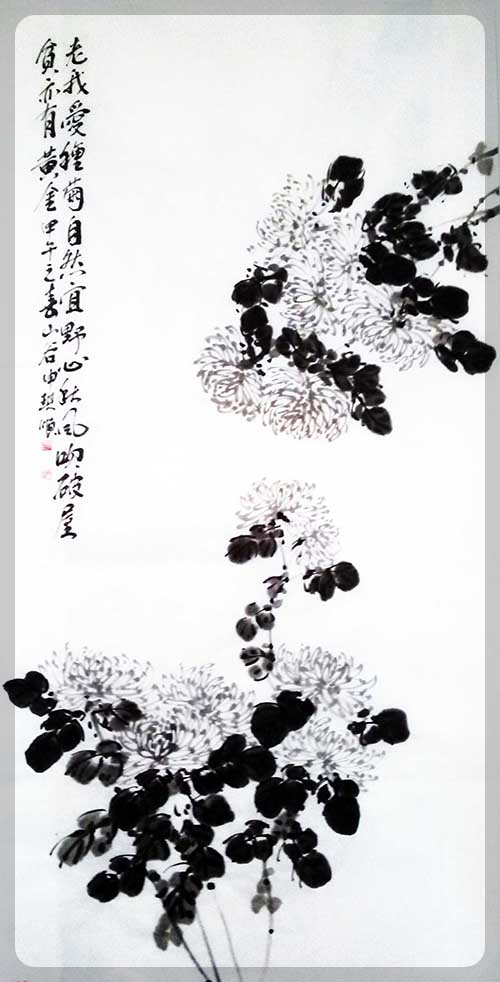 老我愛種菊自然宜野心秋風吹破屋
貧亦有黃金甲午之春山谷